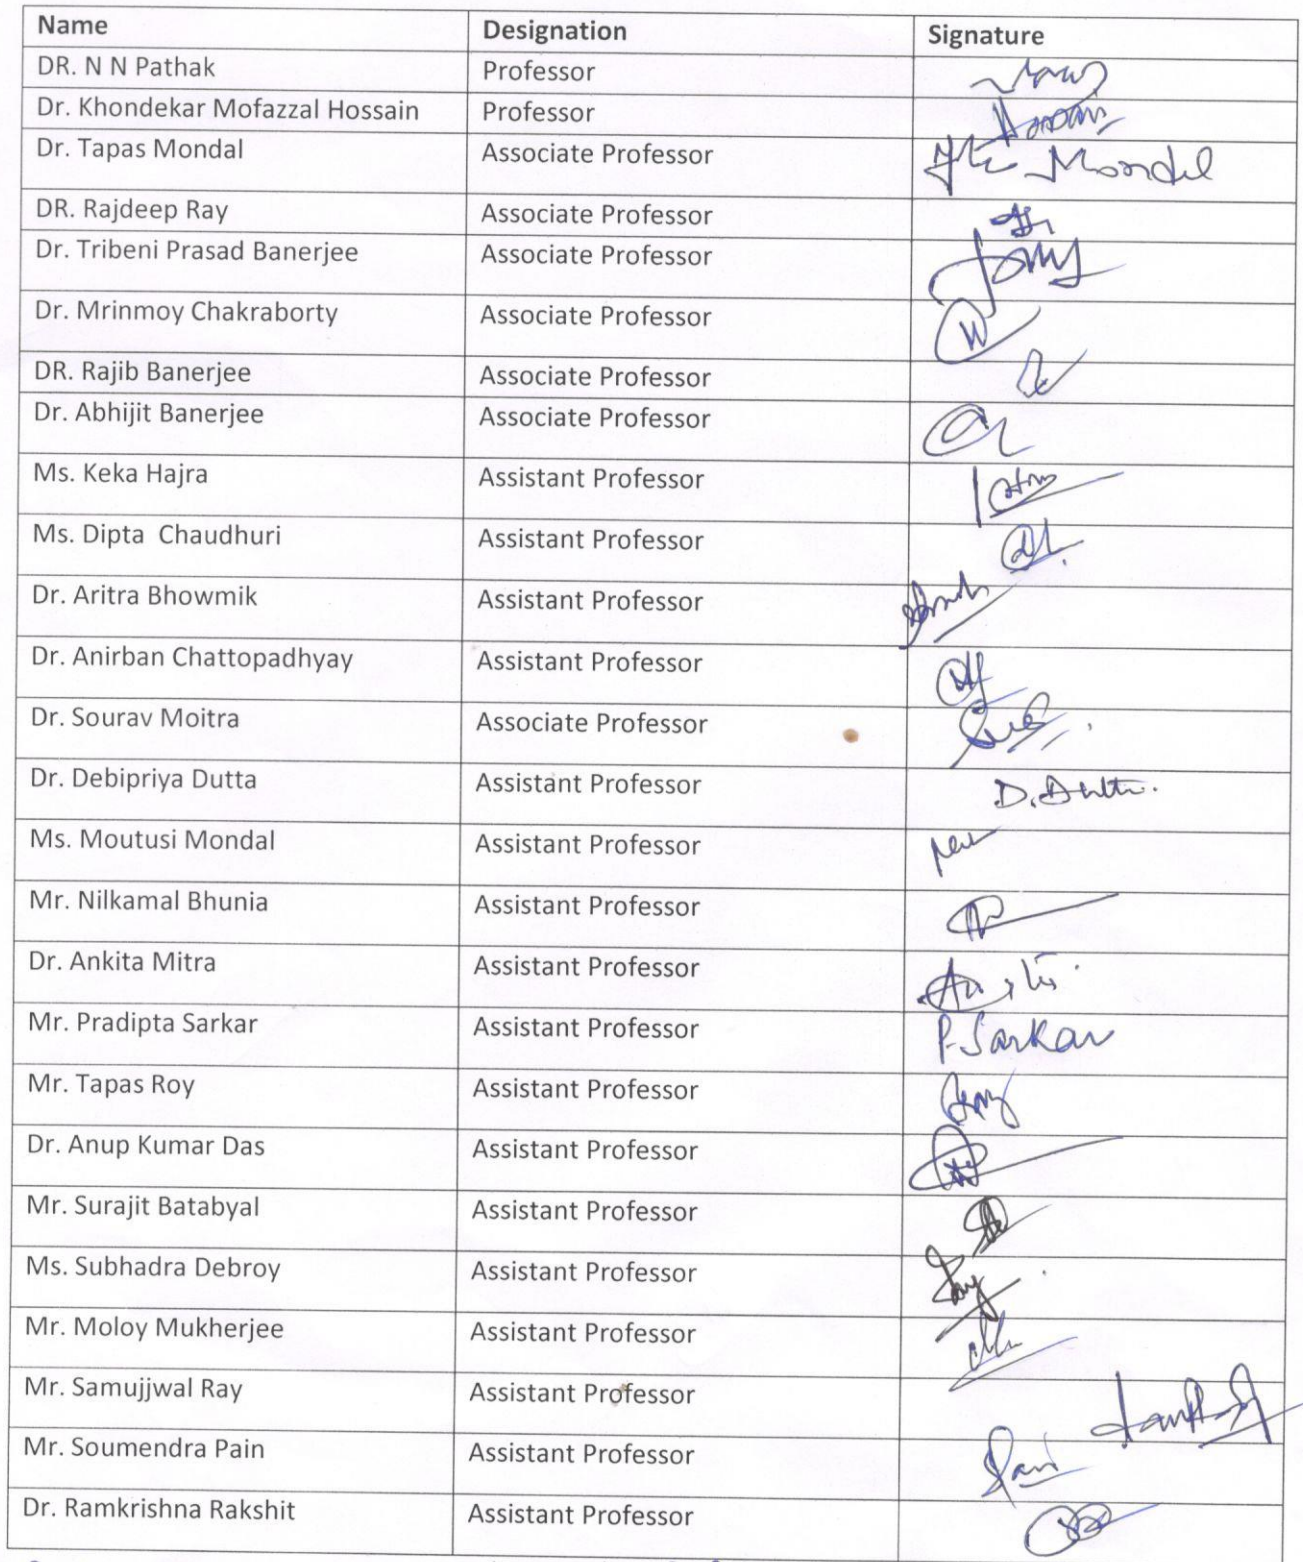 Name Designation Signature
DR. N N Pathak Professor
Dr. Khondekar Mofazzal Hossain Professor
Dr. Tapas Mondal Associate Professor Mondal
DR. Rajdeep Ray Associate Professor
Dr. Tribeni Prasad Banerjee Associate Professor
Dr. Mrinmoy Chakraborty Associate Professor
DR. Rajib Banerjee Associate Professor
Dr. Abhijit Banerjee Associate Professor
Ms. Keka Hajra Assistant Professor
Ms. Dipta Chaudhuri Assistant Professor
Dr. Aritra Bhowmik Assistant Professor
Dr. Anirban Chattopadhyay Assistant Professor
Dr. Sourav Moitra Associate Professor
Dr. Debipriya Dutta Assistant Professor D. Dutta.
Ms. Moutusi Mondal Assistant Professor
Mr. Nilkamal Bhunia Assistant Professor
Dr. Ankita Mitra Assistant Professor
Mr. Pradipta Sarkar Assistant Professor P. Sarkar
Mr. Tapas Roy Assistant Professor
Dr. Anup Kumar Das Assistant Professor
Mr. Surajit Batabyal Assistant Professor
Ms. Subhadra Debroy Assistant Professor
Mr. Moloy Mukherjee Assistant Professor
Mr. Samujjwal Ray Assistant Professor
Mr. Soumendra Pain Assistant Professor Pain
Dr. Ramkrishna Rakshit Assistant Professor